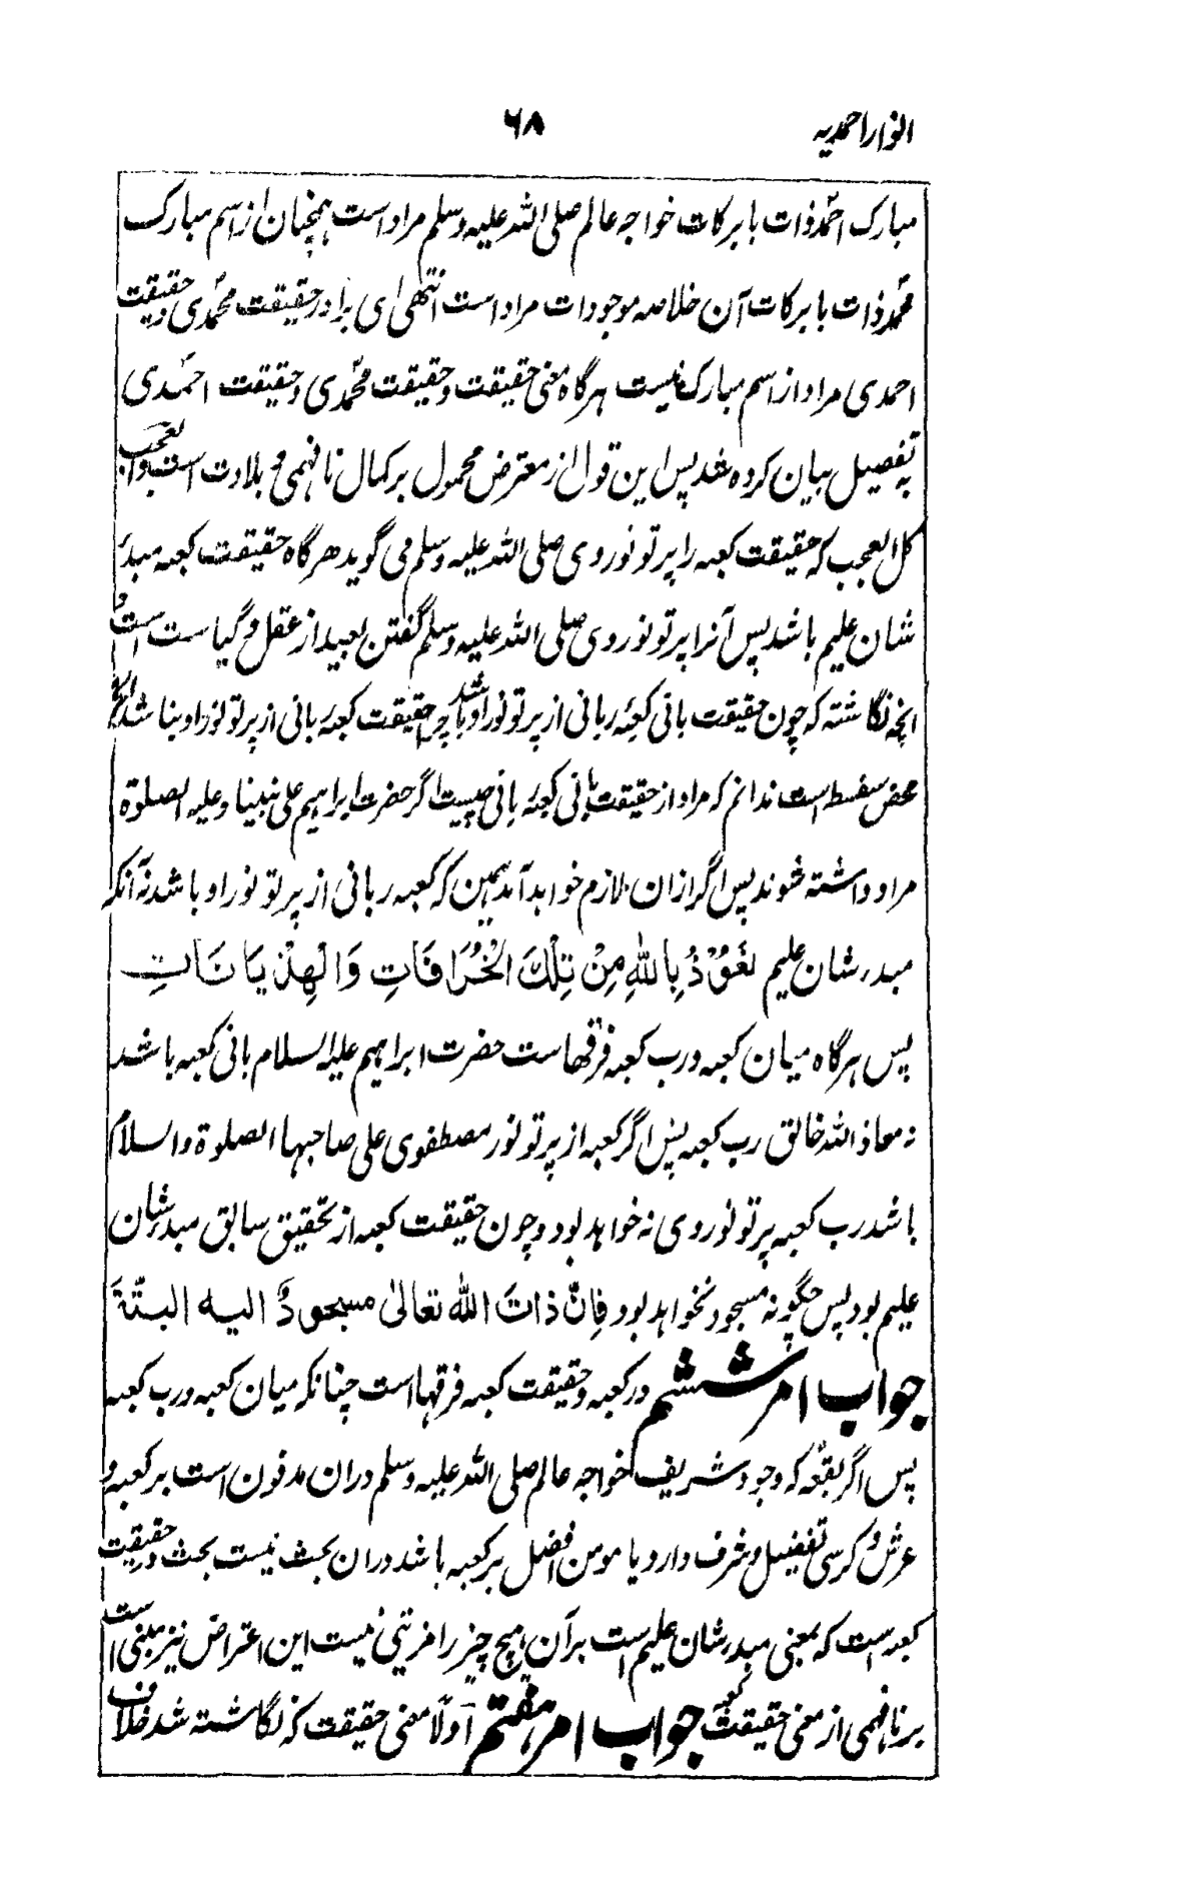 انوار احمدیہ
۶۸
مبارک احمدؐ ذات بابرکات خواجہ عالم صلی اللہ علیہ وسلم مراد است ہمچنان از اسم مبارک
محمدؐ ذات بابرکات آن خلاصہ موجودات مراد است انتہی ای برادر حقیقت محمدؐی و حقیقت
احمدی مراد از اسم مبارک نیست ہرگاہ معنی حقیقت و حقیقت محمدؐی و حقیقت احمدؐی
بہ تفصیل بیان کردہ شد پس این قول از معترض محمول بر کمال نافہمی و بلادت است والعجب
کل العجب کہ حقیقت کعبہ را پرتو نور وی صلی اللہ علیہ وسلم می گوید ھرگاہ حقیقت کعبہ مبدء
شان علیم باشد پس آنرا پرتو نور وی صلی اللہ علیہ وسلم گفتن بعید از عقل و گیاست است و
انچہ نگاشتہ کہ چون حقیقت بانی کعبۂ ربانی از پرتو نور او باشد چرا حقیقت کعبۂ ربانی از پرتو نور او بنا شد الخ
محض سفسطہ است ندانم کہ مراد از حقیقت بانی کعبۂ ربانی چیست اگر حضرت ابراہیم علی نبینا وعلیہ الصلوۃ
مراد داشتہ شوند پس اگر ازان لازم خواہد آمد ہمین کہ کعبہ ربانی از پرتو نور او باشد نہ آنکہ
مبدء شان علیم نَعُوْذُ بِاللهِ مِنْ تِلْكَ الْخُرَافَاتِ وَالْهِذْيَانَاتِ
پس ہرگاہ میان کعبہ و رب کعبہ فرقھاست حضرت ابراہیم علیہ السلام بانی کعبہ باشد
نہ معاذ اللہ خالق رب کعبہ پس اگر کعبہ از پرتو نور مصطفوی علی صاحبہا الصلوۃ والسلام
باشد رب کعبہ پرتو نور وی نہ خواہد بود و چون حقیقت کعبہ از تحقیق سابق مبدء شان
علیم بود پس چگونہ مسجود نخواہد بود فِانّ ذاتَ الله تعالیٰ مسجودٌ الیہ البتّةَ
جواب امر ششم در کعبہ و حقیقت کعبہ فرقہا است چنانکہ میان کعبہ و رب کعبہ
پس اگر بقعۂ کہ وجود شریف خواجہ عالم صلی اللہ علیہ وسلم دران مدفون است بر کعبہ و
عرش و کرسی تفضیل و شرف دارد یا مومن افضل بر کعبہ باشد دران بحث نیست بحث در حقیقت
کعبہ است کہ بمعنی مبدء شان علیم است بر آن ہیچ چیز را مزیتی نیست این اعتراض نیز مبنی است
بر نافہمی از معنی حقیقت کعبہ جواب امر ہفتم اولاً معنی حقیقت کہ نگاشتہ شد خلاف